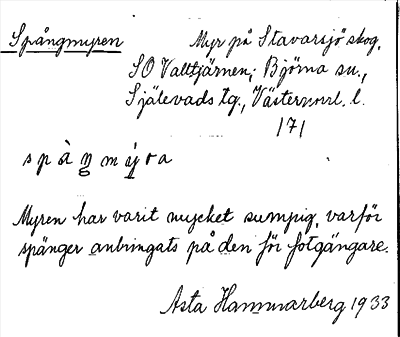 Spångmyren Myr på Stavarsjö skog,
SO Valltjärnen; Björna sn.,
Själevads tg., Västernorrl. l.
171
spàŋmy̆ra
Myren har varit mycket sumpig, varför
spänger anbringats på den för fotgängare.
Asta Hammarberg 1933